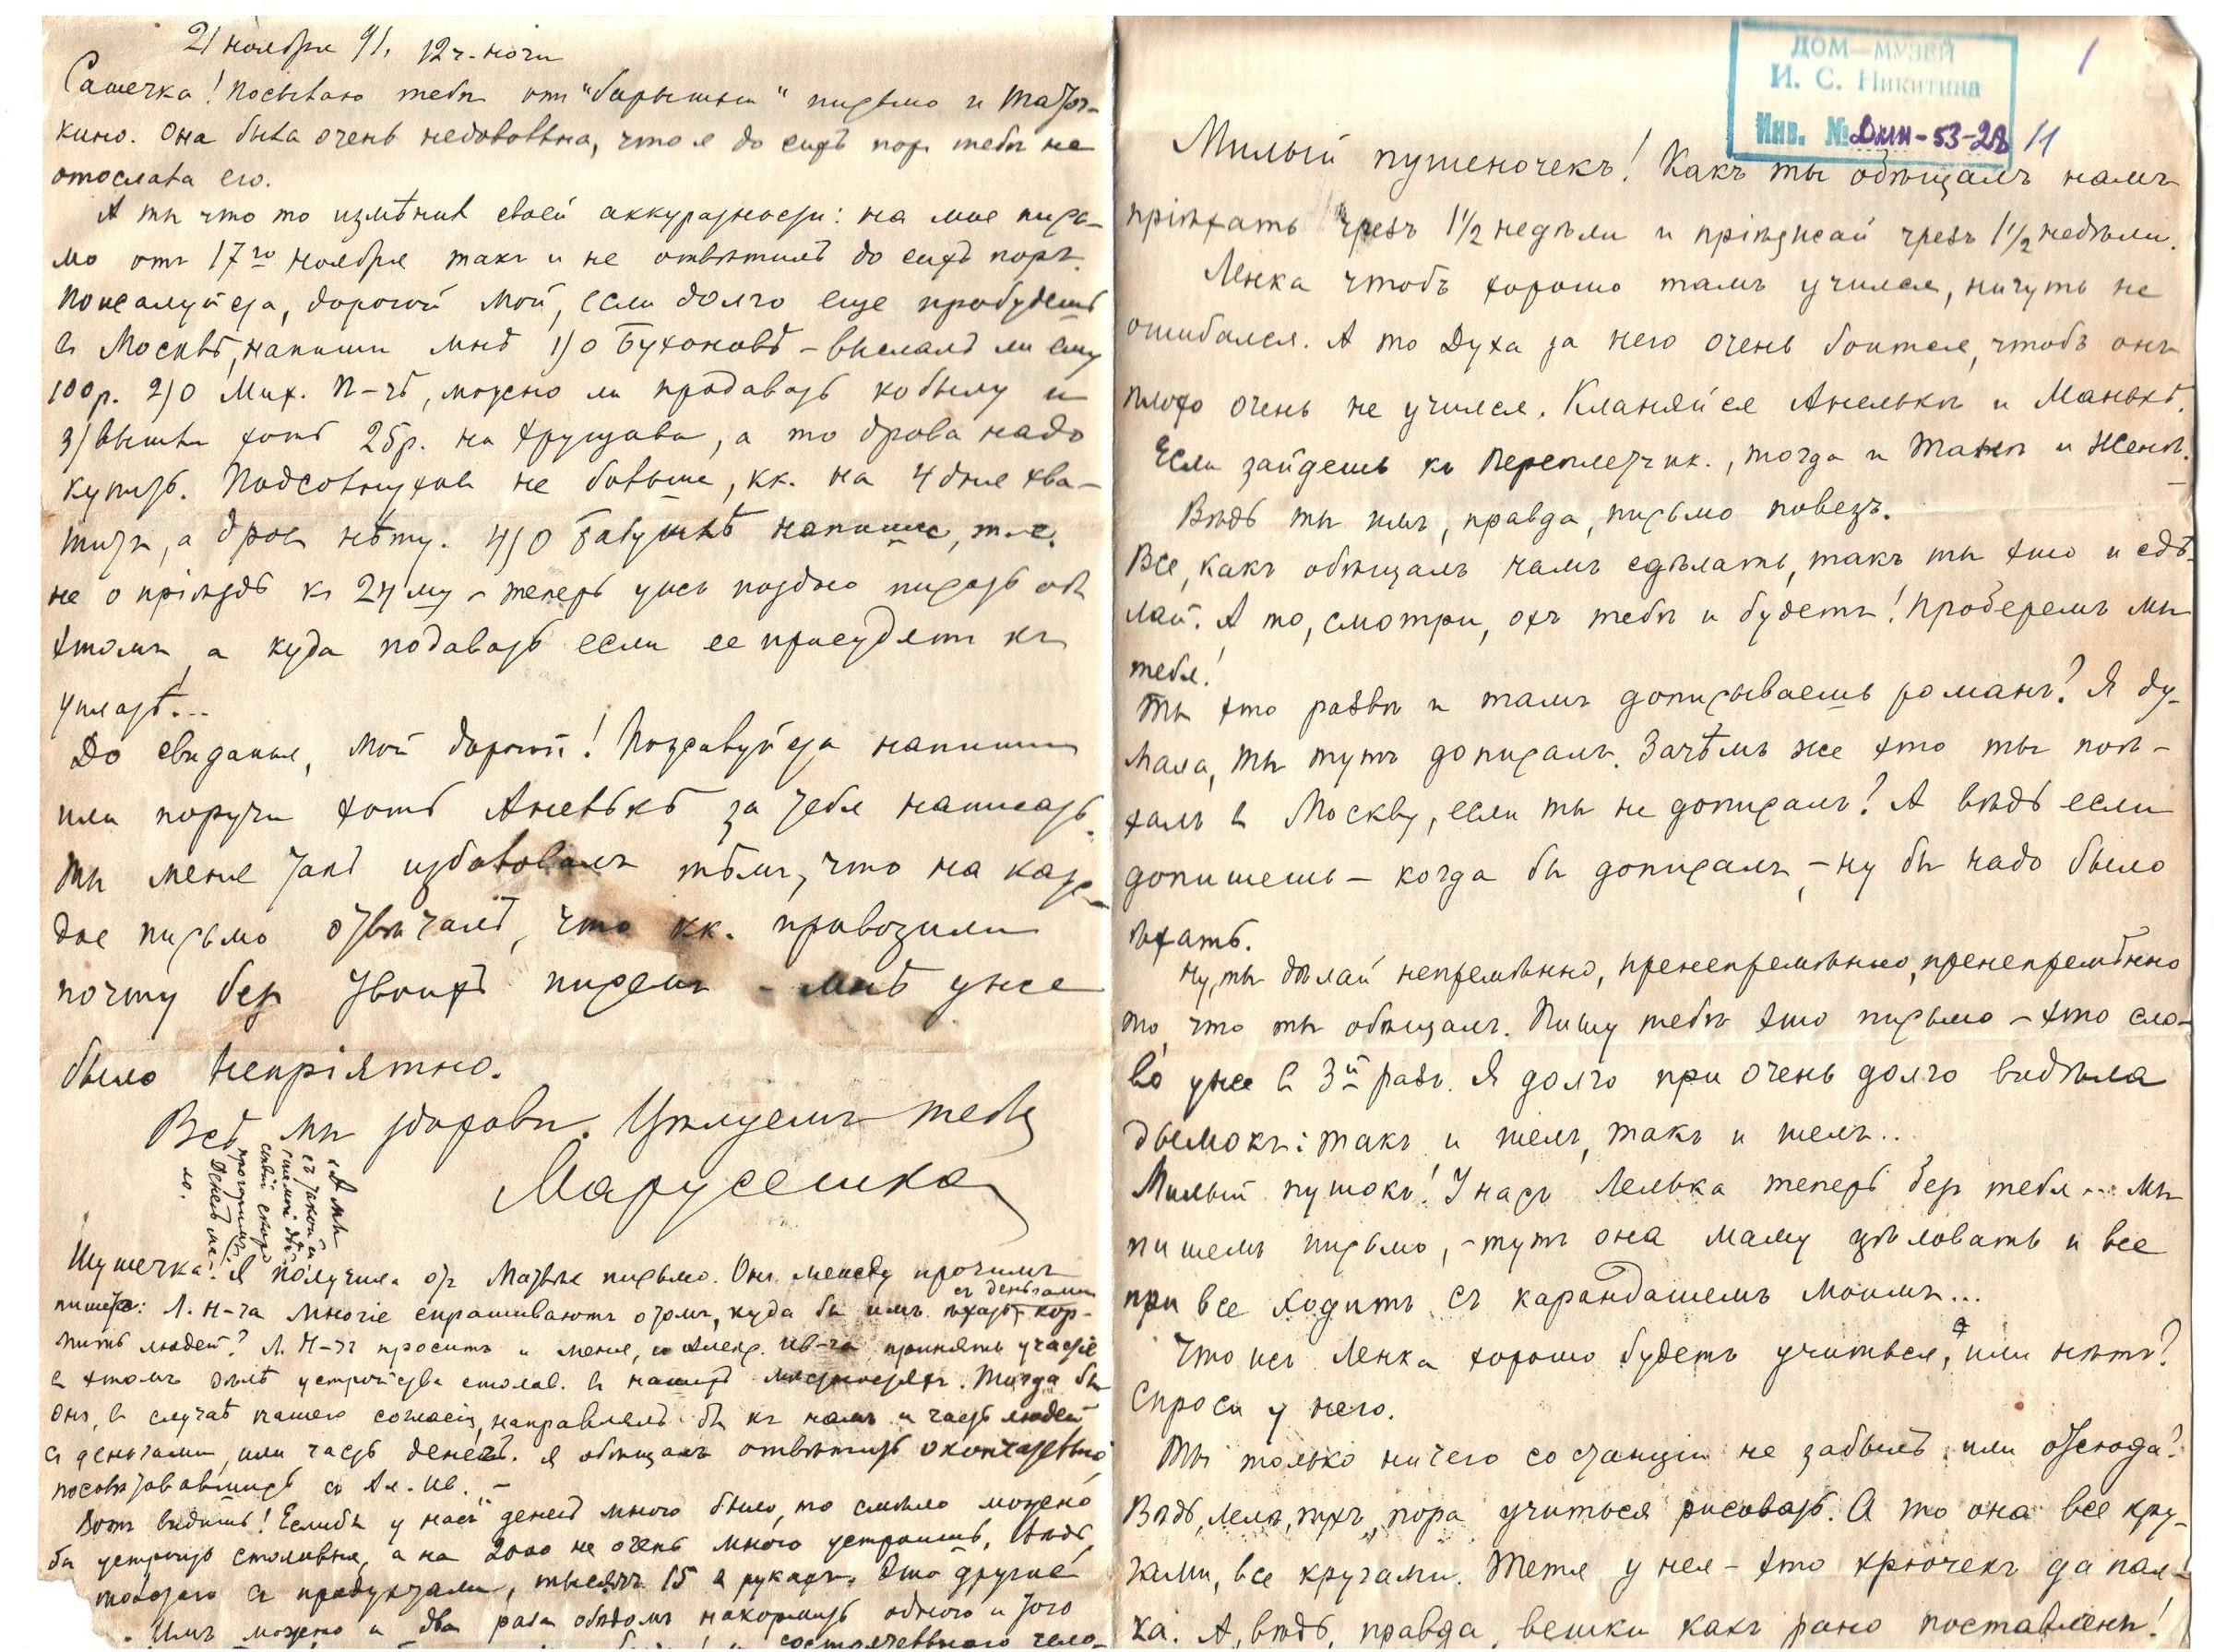 21 ноября 91. 12 ч. ночи
Сашечка! Посылаю тебѣ отъ "барышни" письмо и Таточ-
кино. Она была очень недовольна, что я до сихъ поръ тебѣ не
отослала его.
А ты что то измѣнил своей аккуратности: на мое пись-
мо отъ 17го ноября такъ и не отвѣтилъ до сихъ поръ.
Пожалуйста, дорогой мой, если долго еще пробудешь
в Москвѣ, напиши мнѣ 1) О Бухоновѣ – выслалъ ли ему
100р. 2) О Мих. П-чѣ, можно ли продавать кобылу и
3) вышли хоть 25р. на Хрущева, а то дрова надо
купить. Подсолнухов не больше, кк. на 4 дня хва-
тит, а дров нѣту. 4) О Бабушкѣ напиши, т.е.
не о пріѣздѣ к 24му – теперь ужъ поздно писать об
этомъ, а куда подавать если ее присудятъ къ
уплатѣ...
До свиданья, мой дорогой! Пожалуйста напиши
или поручи хоть Анелькѣ за тебя написать.
Ты меня такъ избаловалъ тѣмъ, что на каж-
дое письмо отвѣчалъ, что кк. привозили
почту без твоихъ писемъ – мнѣ уже
было непріятно.
Всѣ мы здоровы. Цѣлуемъ тебя
Марусешка
Шушечка! Я получила от Матвѣя письмо. Онъ между прочимъ
съ деньгами
пишетъ: Л. Н-ча многіе спрашиваютъ о томъ, куда бы имъ ѣхать кор-
мить людей? Л. Н-чъ проситъ и меня, и Алекс. Ив-ча принять участіе
в этомъ дѣлѣ устройства столов. в нашей мѣстности. Тогда бы
онъ, в случаѣ нашего согласія, направлялъ бы къ намъ и часть людей
с деньгами, или часть денегъ. Я обѣщалъ отвѣтить окончательно,
посовѣтовавшись со Ал. Ив. –
Вотъ видишь! Если бы у насъ денегъ много было, то смѣло можно
бы устроить столовыя, а на 2000 не очень много устроишь. Вѣдь
у Толстого съ продуктами, тысячъ 15 в рукахъ. Это другое
Имъ можно и два раза обѣдомъ накормить одного и того
ДОМ—МУЗЕЙ
И. С. Никитина
Инв. № Дмн-53-28 11
1
Милый пушеночекъ! Какъ ты обѣщалъ намъ
пріѣхать чрезъ 1½ недѣли и пріѣзжай чрезъ 1½ недѣли.
Ленка чтобъ хорошо тамъ учился, ничуть не
ошибался. А то Духа за него очень боится, чтобъ онъ
плохо очень не учился. Кланяйся Анелькѣ и Манькѣ.
Если зайдешь къ Переплетчик., тогда и Танѣ и Женѣ.
Вѣдь ты имъ, правда, письмо повезъ.
Все, какъ обѣщалъ намъ сдѣлать, такъ ты это и сдѣ-
лай. А то, смотри, охъ тебѣ и будетъ! Проберемъ мы
тебя!
Ты это развѣ и тамъ дописываешь романъ? Я ду-
мала, ты тутъ дописалъ. Зачѣмъ же это ты поѣ-
халъ в Москву, если ты не дописалъ? А вѣдь если
допишешь – когда бы дописалъ, – ну бы надо было
ѣхать.
Ну, ты дѣлай непремѣнно, пренепремѣнно, пренепремѣнно
то, что ты обѣщалъ. Пишу тебѣ это письмо – это сло-
во уже в 3й разъ. Я долго при очень долго видѣла
дымокъ: такъ и шелъ, такъ и шелъ...
Милый пушокъ! У насъ Лелька теперь без тебя... мы
пишемъ письмо, – тутъ она маму цѣловать и все
при все ходитъ съ карандашемъ моимъ...
Что жъ Ленка хорошо будетъ учиться, или нѣтъ?
Спроси у него.
Ты только ничего со станціи не забылъ или отсюда?
Вѣдь, Леля, тхъ, пора учиться рисовать. А то она все кру-
гами, все кругами. Тетя у нея – это крючекъ да пал-
ка. А, вѣдь, правда, вешки какъ рано поставлены!